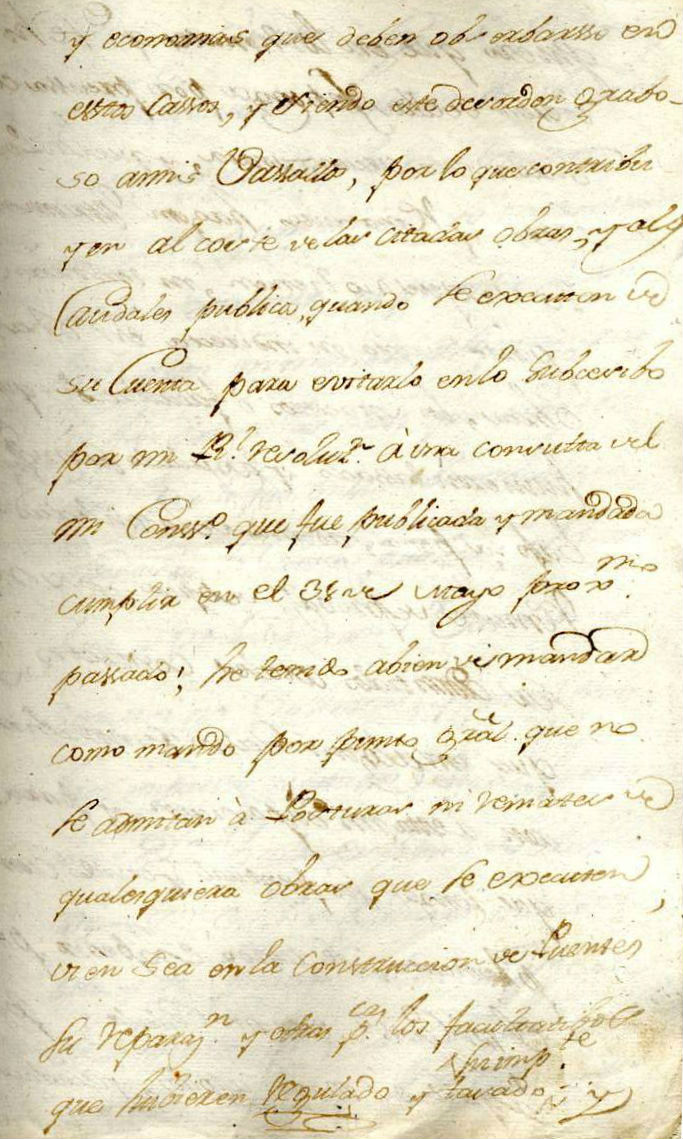 y economias que deben observarsse en
estos Cassos, y siendo este desorden grabo-
so a mis Vassallos, por lo que contribu-
yen al coste de las citadas obras, y a los
Caudales publicos, quando se executan de
su Cuenta para evitarlo en lo subcesibo
por mi Rl. resoluzn. à una consulta del
mi Conssº. que fue publicada y mandada
cumplir en el de Mayo proxmo.
passado; he tenido a bien de mandar
como mando por punto gral. que no
se admitan à Posturas ni remates de
qualesquiera obras que se executen,
bien sea en la Construccion de Puentes
su reparazn. y otras los facultativos
que hubieren regulado y tasado su impte. y